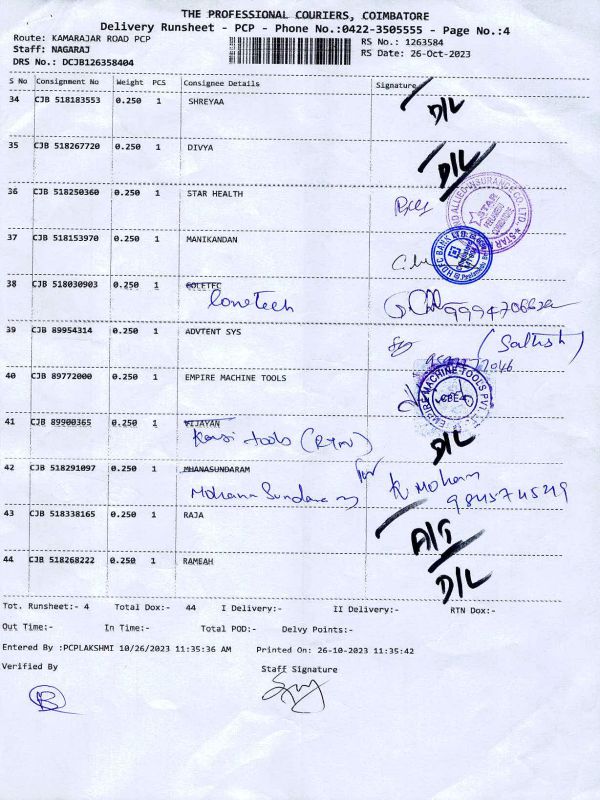 THE PROFESSIONAL COURIERS, COIMBATORE
Delivery Runsheet - PCP - Phone No.:0422-3505555 - Page No.:4
Route: KAMARAJAR ROAD PCP RS No.: 1263584
Staff: NAGARAJ RS Date: 26-Oct-2023
DRS No.: DCJB126358404
S No Consignment No Weight PCS Consignee Details Signature
34 CJB 518183553 0.250 1 SHREYAA D/L
35 CJB 518267720 0.250 1 DIVYA D/L
36 CJB 518250360 0.250 1 STAR HEALTH
STAR
37 CJB 518153970 0.250 1 MANIKANDAN
HDFC BANK LTD.
38 CJB 518030903 0.250 1 COLETEC
Conetech
39 CJB 89954314 0.250 1 ADVTENT SYS (Sathish)
40 CJB 89772000 0.250 1 EMPIRE MACHINE TOOLS
EMPIRE MACHINE TOOLS PVT. LTD. CBE-4
41 CJB 89900365 0.250 1 VIJAYAN
Kasi tools (RTN) D/L
42 CJB 518291097 0.250 1 MHANASUNDARAM
Mohana Sundaram for K Mohan
9845745219
43 CJB 518338165 0.250 1 RAJA A/S
44 CJB 518268222 0.250 1 RAMEAH D/L
Tot. Runsheet:- 4 Total Dox:- 44 I Delivery:- II Delivery:- RTN Dox:-
Out Time:- In Time:- Total POD:- Delvy Points:-
Entered By :PCPLAKSHMI 10/26/2023 11:35:36 AM Printed On: 26-10-2023 11:35:42
Verified By Staff Signature